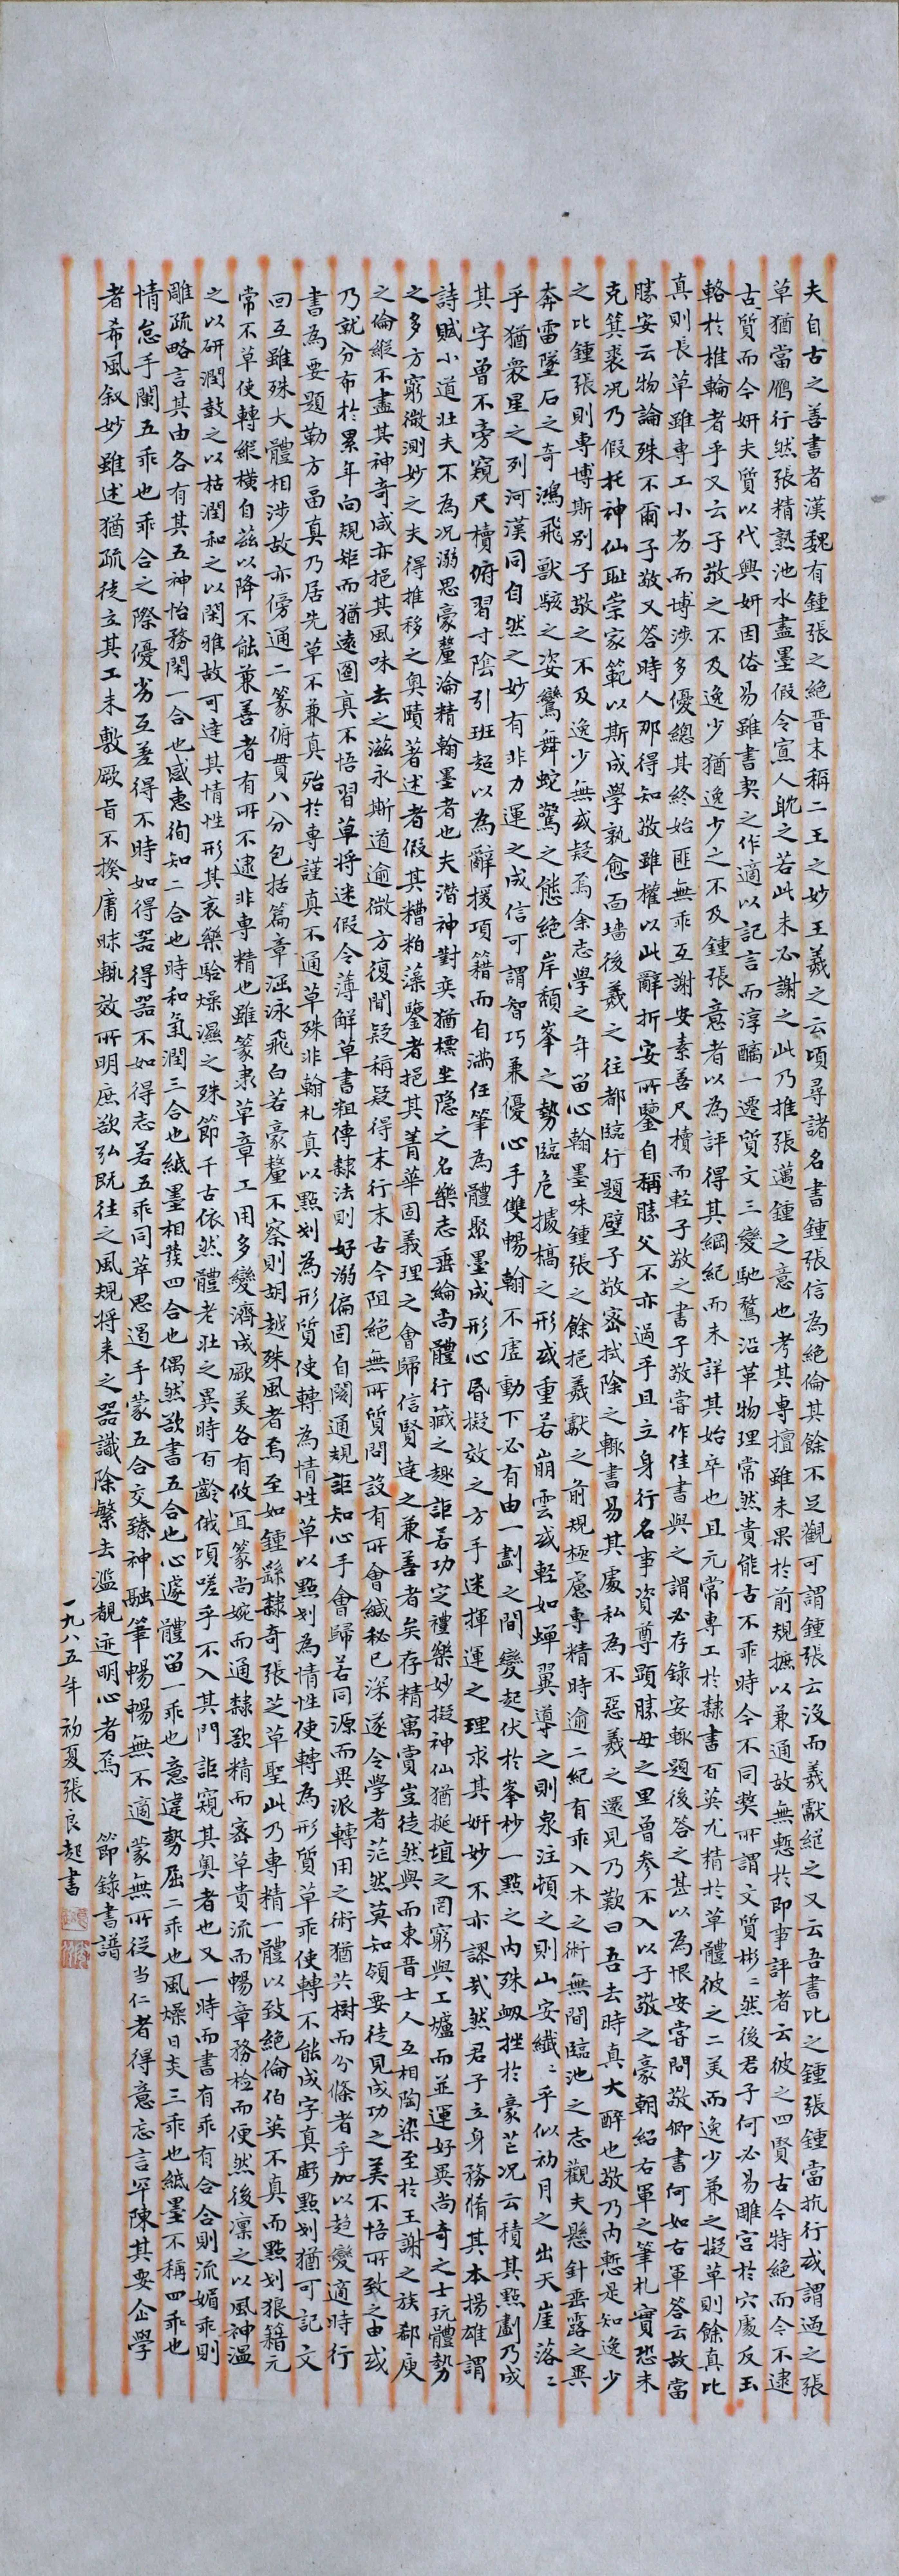 夫自古之善書者漢魏有鍾張之絕晋末稱二王之妙王羲之云頃尋諸名書鍾張信為絕倫其餘不足觀可謂鍾張云沒而羲獻繼之又云吾書比之鍾張鍾當抗行或謂過之張
草猶當鴈行然張精熟池水盡墨假令寡人耽之若此未必謝之此乃推張邁鍾之意也考其專擅雖未果於前規摭以兼通故無慙於即事評者云彼之四賢古今特絕而今不逮
古質而今妍夫質以代興妍因俗易雖書契之作適以記言而淳醨一遷質文三變馳騖沿革物理常然貴能古不乖時今不同獘所謂文質彬〻然後君子何必易雕宮於穴處反玉
輅於椎輪者乎又云子敬之不及逸少猶逸少之不及鍾張意者以為評得其綱紀而未詳其始卒也且元常專工於隸書百英尤精於草體彼之二美而逸少兼之擬草則餘真比
真則長草雖專工小劣而博涉多優總其終始匪無乖互謝安素善尺牘而輕子敬之書子敬嘗作佳書與之謂必存錄安輒題後答之甚以為恨安嘗問敬卿書何如右軍答云故當
勝安云物論殊不爾子敬又答時人那得知敬雖權以此辭折安所鑒自稱勝父不亦過乎且立身行名事資尊顯勝母之里曾參不入以子敬之豪翰紹右軍之筆札實恐未
克箕裘况乃假托神仙耻崇家範以斯成學孰愈面墙後羲之往都臨行題壁子敬密拭除之輒書易其處私為不惡羲之還見乃歎曰吾去時真大醉也敬乃內慙是知逸少
之比鍾張則專博斯别子敬之不及逸少無或疑焉余志學之年留心翰墨味鍾張之餘挹羲獻之前規極慮專精時逾二紀有乖入木之術無間臨池之志觀夫懸針垂露之異
奔雷墜石之奇鴻飛獸駭之姿鸞舞蛇驚之態絕岸頹峯之勢臨危據槁之形或重若崩雲或輕如蟬翼導之則泉注頓之則山安纖〻乎似初月之出天崖落〻
乎猶衆星之列河漢同自然之妙有非力運之成信可謂智巧兼優心手雙暢翰不虛動下必有由一劃之間變起伏於峯杪一點之內殊衂挫於豪芒况云積其點劃乃成
其字曾不旁窺尺牘俯習寸陰引班超以為辭援項籍而自滿任筆為體聚墨成形心昏擬效之方手迷揮運之理求其妍妙不亦謬哉然君子立身務脩其本揚雄謂
詩賦小道壯夫不為况溺思豪釐淪精翰墨者也夫潛神對奕猶標坐隐之名樂志垂綸尚體行藏之趣詎若功定禮樂妙擬神仙猶挻埴之罔窮與工爐而並運好異尚奇之士玩體勢
之多方窮微測妙之夫得推移之奥賾著述者假其糟粕藻鑒者挹其菁華固義理之會歸信賢達之兼善者矣存精寓賞豈徒然與而東晋士人互相陶染至於王謝之族郗庾
之倫縱不盡其神奇咸亦挹其風味去之滋永斯道逾微方復聞疑稱疑得末行末古今阻絕無所質問設有所會緘秘已深遂令學者茫然莫知領要徒見成功之美不悟所致之由或
乃就分布於累年向規矩而猶遠圖真不悟習草將迷假令薄解草書粗傳隸法則好溺偏固自閡通規詎知心手會歸若同源而異派轉用之術猶共樹而分條者乎加以趋變適時行
書為要題勒方畐真乃居先草不兼真殆於專謹真不通草殊非翰札真以點划為形質使轉為情性草以點划為情性使轉為形質草乖使轉不能成字真虧點划猶可記文
回互雖殊大體相涉故亦傍通二篆俯貫八分包括篇章涵泳飛白若豪釐不察則胡越殊風者焉至如鍾繇隸奇張芝草聖此乃專精一體以致絕倫伯英不真而點划狼籍元
常不草使轉縱橫自兹以降不能兼善者有所不逮非專精也雖篆隶草章工用多變濟成厥美各有攸宜篆尚婉而通隸欲精而密草貴流而暢章務檢而便然後凛之以風神温
之以研潤鼓之以枯潤和之以閑雅故可達其情性形其哀樂驗燥濕之殊節千古依然體老壯之異時百齡俄頃嗟乎不入其門詎窺其奥者也又一時而書有乖有合合則流媚乖則
雕疏略言其由各有其五神怡務閑一合也感惠徇知二合也時和氣潤三合也紙墨相發四合也偶然欲書五合也心遽體留一乖也意違勢屈二乖也風燥日炎三乖也紙墨不稱四乖也
情怠手闌五乖也乖合之際優劣互差得不時如得器得器不如得志若五乖同萃思遏手蒙五合交臻神融筆暢暢無不適蒙無所從当仁者得意忘言罕陳其要企學
者希風叙妙雖述猶疏徒立其工未敷厥旨不揆庸昧輒效所明庶欲弘既往之風規將来之器識除繁去濫覩迹明心者焉 節錄書譜
一九八五年初夏張良起書